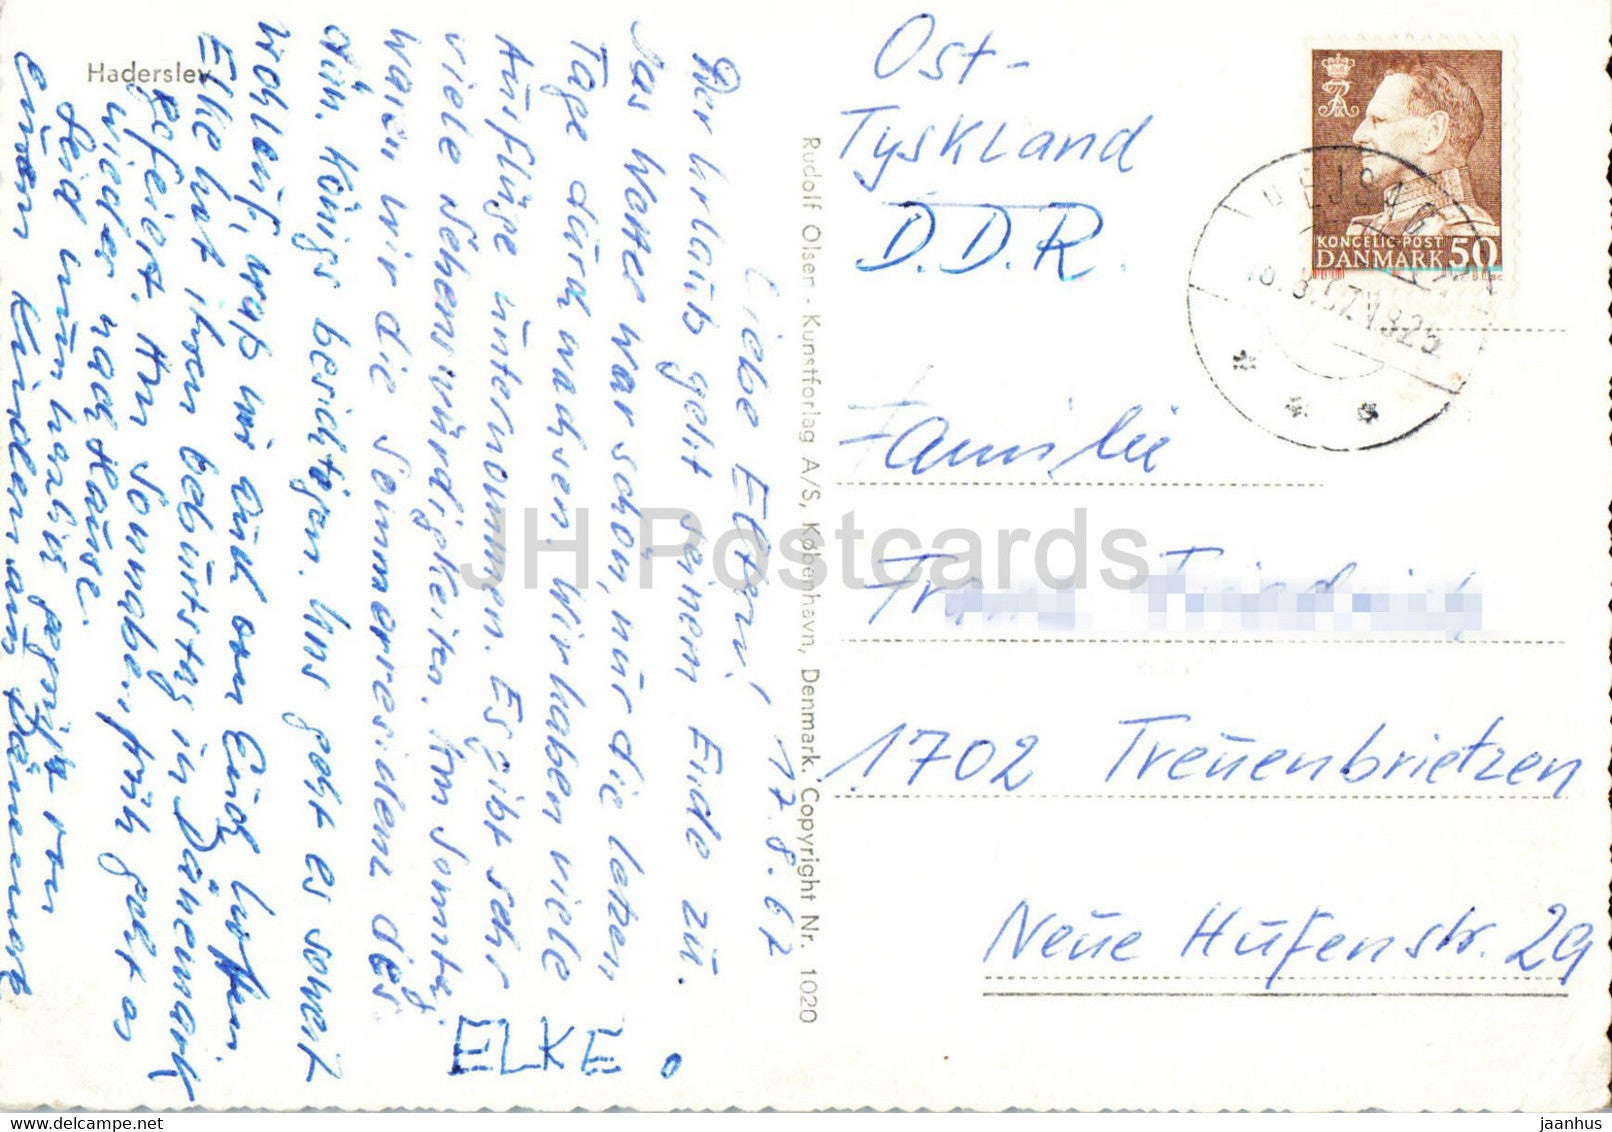 Haderslev
Liebe Eltern! 17.8.67
Der Urlaub geht seinen Ende zu.
Das Wetter war schön, nur die letzen
Tage durchwachsen. Wir haben viele
Ausflüge unternommen. Es gibt sehr
viele Sehenswürdigkeiten. Am Sonntag
waren wir die Sommerresidenz des
dän. Königs besichtigen. Uns geht es soweit
wohlauf, was wir auch von Euch hoffen.
Elke hat ihren Geburtstag in Dänemark
gefeiert. Am Sonnabend früh geht es
wieder nach Hause.
Seid nun herzlich gegrüßt von
euren Kindern aus Dänemark
ELKE
Rudolf Olsen - Kunstforlag A/S, København, Denmark. Copyright Nr. 1020
Ost-
Tyskland
D.D.R.
Familie
1702 Treuenbrietzen
Neue Hufenstr. 29
KONGELIG·POST
DANMARK 50
HEJSAGER
JH Postcards
jaanhus